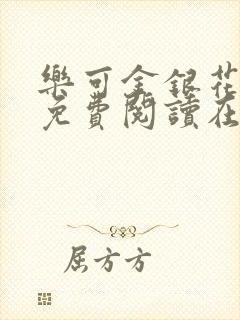 樂可金銀花
免費閱讀在
屈方方